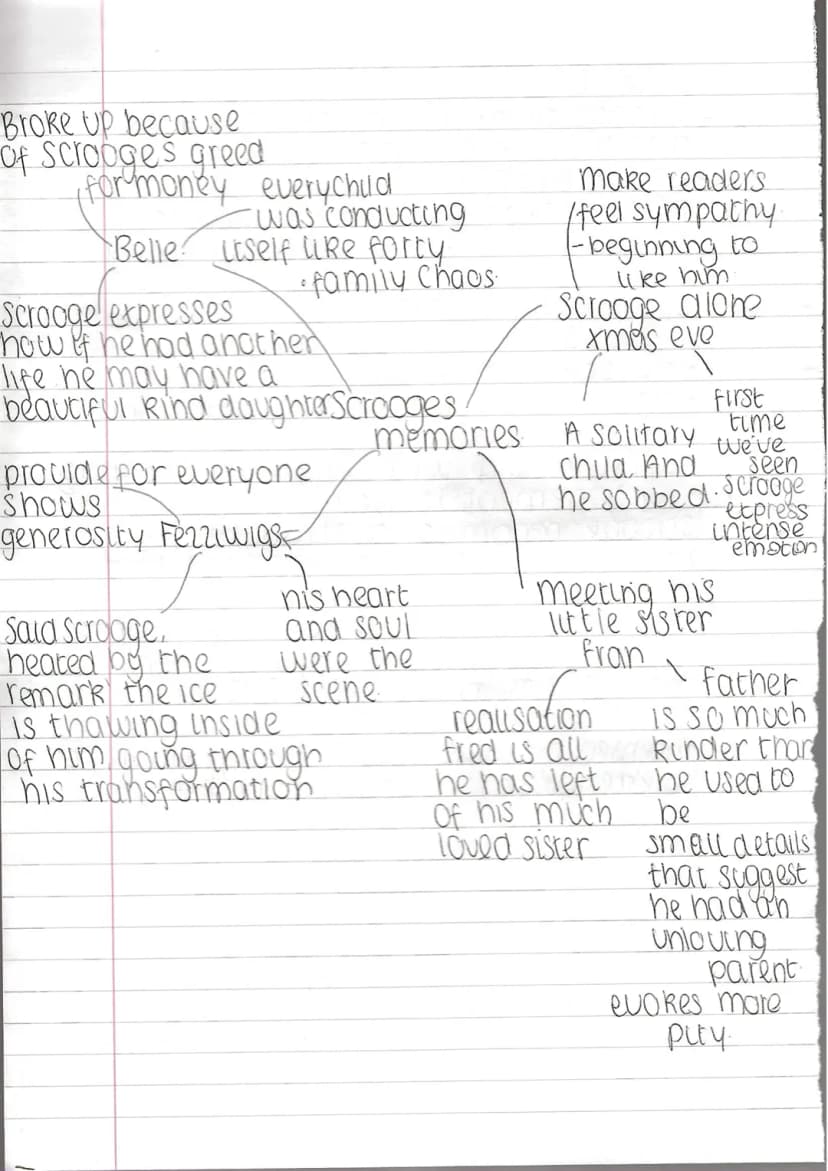 Broke up because
of scrooges greed
for money
everychild
was conducting
itself like forty
·family chaos.
Belle
scrooge expresses
how if he had another
life he may have a
beautiful kind daughter
make readers
feel sympathy
-beginning to
like him
scrooge alone
xmas eve
A solitary
child. And
he sobbed.
first
time
we've
seen
scrooge
express
intense
emotion
Scrooges
memories
provide for everyone
shows
generosity
Fezziwigs
said scrooge,
heated by the
remark' the ice
is thawing inside
of him, going through
his transformation
his heart
and soul
were the
scene
meeting his
little sister
fran
realisation
fred is all
he has left
of his much
loved sister
father
is so much
kinder than
he used to
be
small details
that suggest
he had an
unloving
parent
evokes more
pity.